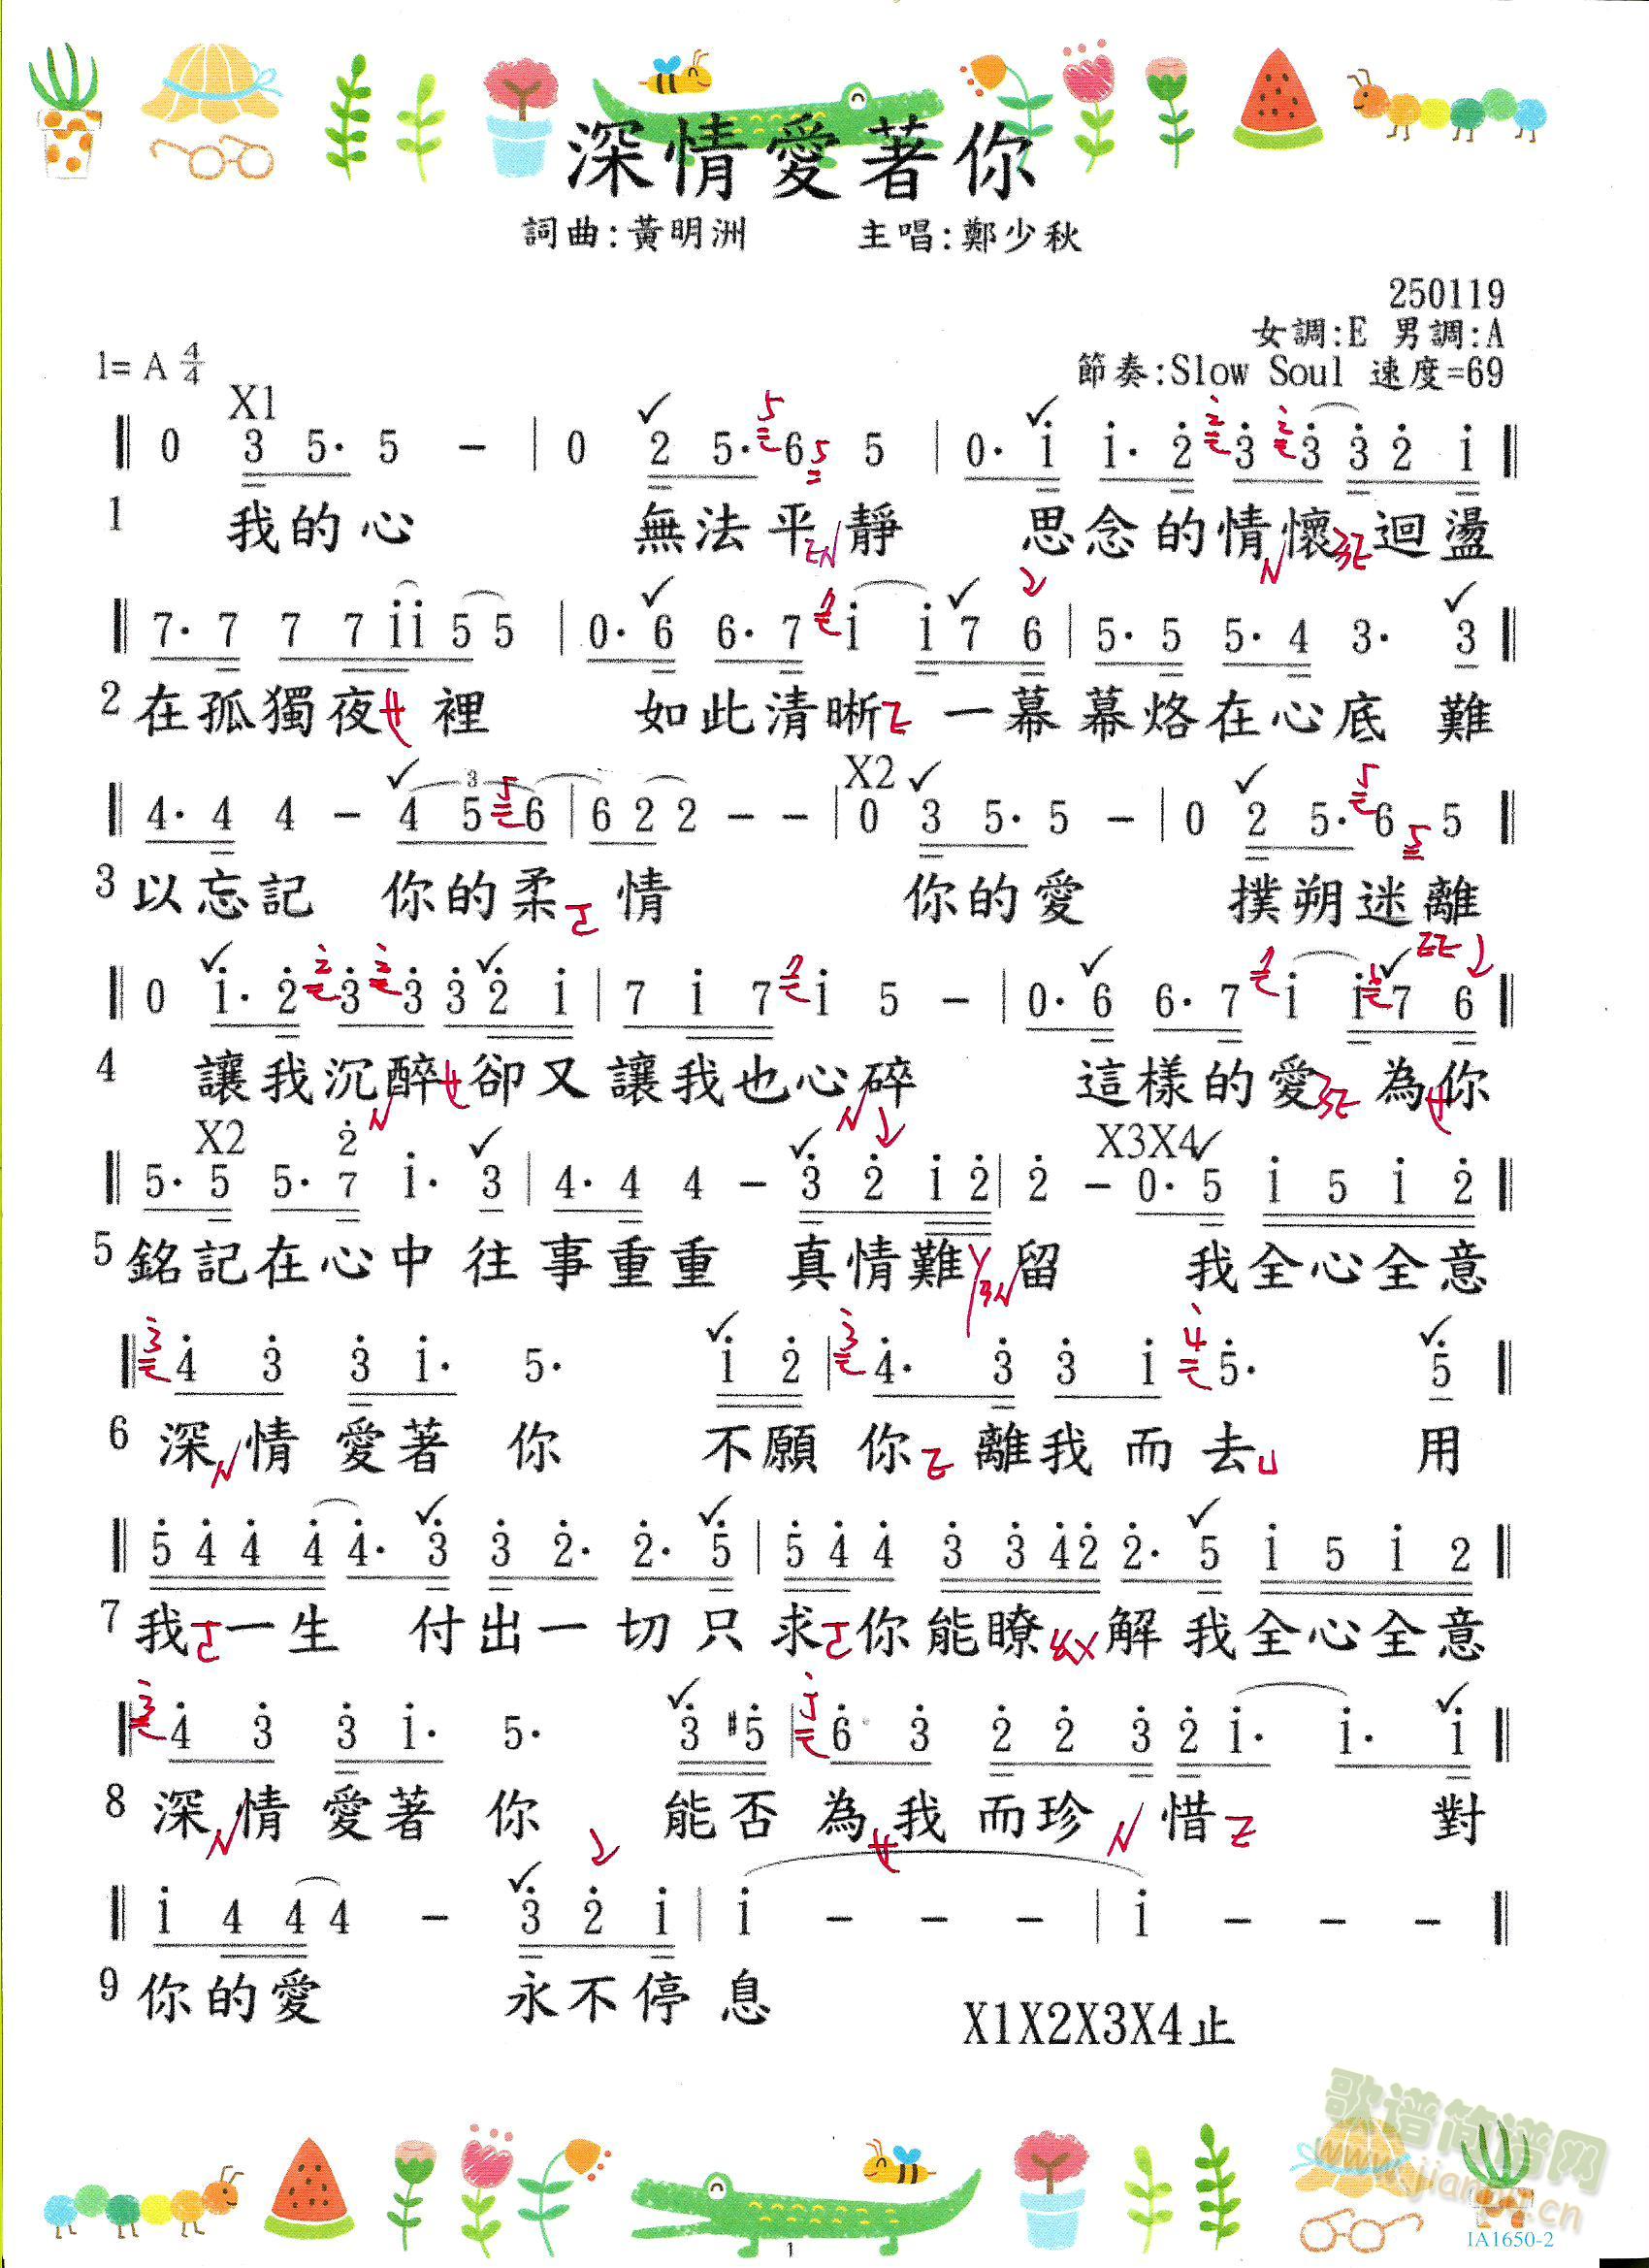 深情愛著你
詞曲:黃明洲 主唱:鄭少秋
250119
女調:E 男調:A
1= A 4/4 節奏:Slow Soul 速度=69
X1
0 3 5· 5 - | 0 2 5· 6 5 | 0· i i· 2 3 3 3 2 i
1 我的心 無法平靜 思念的情懷迴盪
7· 7 7 7 i i 5 5 | 0· 6 6· 7 i i 7 6 | 5· 5 5· 4 3· 3
2 在孤獨夜裡 如此清晰 一幕幕烙在心底 難
X2
4· 4 4 - 4 5 6 | 6 2 2 - - | 0 3 5· 5 - | 0 2 5· 6 5
3 以忘記 你的柔情 你的愛 撲朔迷離
0 i· 2 3 3 3 2 i | 7 i 7 i 5 - | 0· 6 6· 7 i i 7 6
4 讓我沉醉卻又讓我也心碎 這樣的愛 為你
X2 2 X3X4
5· 5 5· 7 i· 3 | 4· 4 4 - 3 2 i 2 | 2 - 0· 5 i 5 i 2
5 銘記在心中 往事重重 真情難留 我全心全意
4 3 3 i· 5· i 2 | 4· 3 3 i 5· 5
6 深情愛著你 不願你離我而去 用
5 4 4 4 4· 3 3 2· 2· 5 | 5 4 4 3 3 4 2 2· 5 i 5 i 2
7 我一生 付出一切只求你能瞭解 我全心全意
4 3 3 i· 5· 3 #5 | 6 3 2 2 3 2 i· i· i
8 深情愛著你 能否為我而珍惜 對
i 4 4 4 - 3 2 i | i - - - | i - - -
9 你的愛 永不停息
X1X2X3X4止
歌谱简谱网
www.jianpu.cn
1
IA1650-2